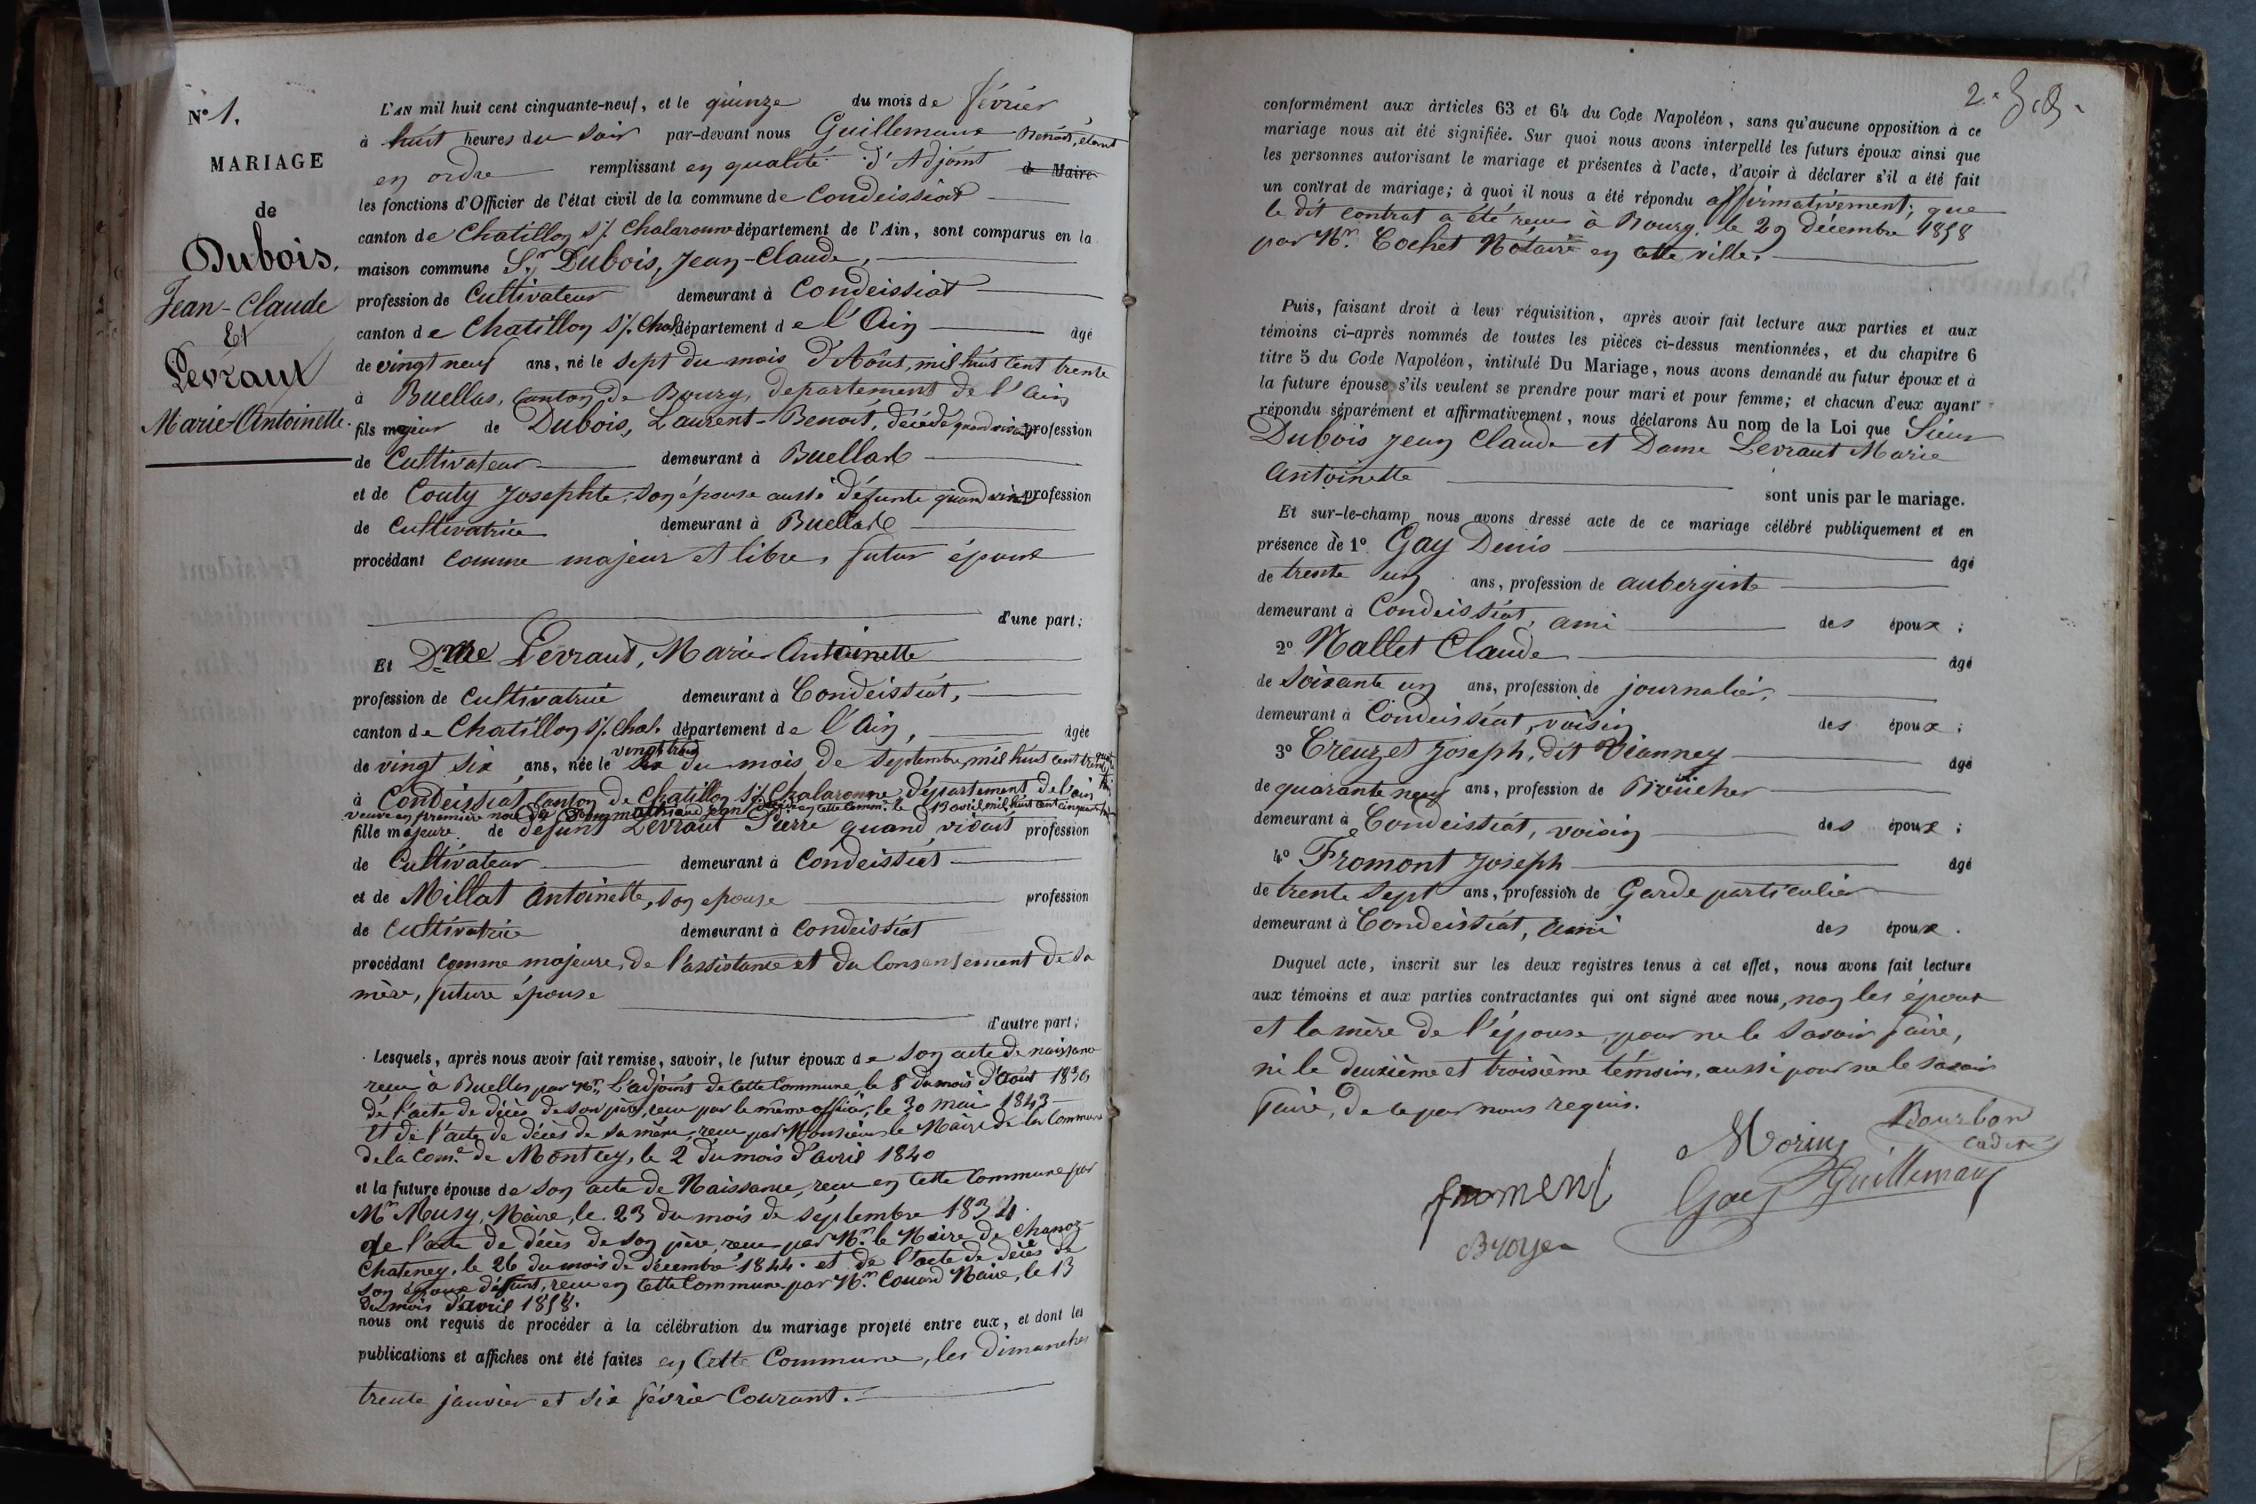 N° 1.
MARIAGE
de
Dubois,
Jean-Claude
Et
Levraux
Marie-Antoinette.
L'AN mil huit cent cinquante-neuf, et le quinze du mois de février
à huit heures du soir par-devant nous Guillemaus Benoit, étant
en ordre remplissant en qualité d'Adjoint de Maire
les fonctions d'Officier de l'état civil de la commune de Condeissiat
canton de Chatillon s/. Chalaronne département de l'Ain, sont comparus en la
maison commune Sr. Dubois, Jean-Claude,
profession de Cultivateur demeurant à Condeissiat
canton de Chatillon s/. Chal. département de l'Ain âgé
de vingt neuf ans, né le sept du mois d'Août, mil huit cent trente
à Buellas, Canton de Bourg, département de l'Ain
fils majeur de Dubois, Laurent-Benoit, décédé quand vivait profession
de Cultivateur demeurant à Buellas
et de Couty Josephte, son épouse aussi défunte quand vivait profession
de Cultivatrice demeurant à Buellas
procédant comme majeur et libre, futur époux
d'une part;
Et Dlle Levraut, Marie Antoinette
profession de Cultivatrice demeurant à Condeissiat,
canton de Chatillon s/. Chal. département de l'Ain, âgée
de vingt six ans, née le vingt trois du mois de Septembre mil huit cent trente
à Condeissiat, Canton de Chatillon s/. Chalaronne, département de l'ain
veuve en première noce de Jean décédé en cette comm. le 13 avril mil huit cent cinquante huit
fille majeure de défunt Levraut Pierre quand vivait profession
de Cultivateur demeurant à Condeissiat
et de Millat Antoinette, son épouse profession
de Cultivatrice demeurant à Condeissiat
procédant comme majeure, de l'assistance et du Consentement de sa
mère, future épouse
d'autre part;
Lesquels, après nous avoir fait remise, savoir, le futur époux de son acte de naissance
reçu à Buellas par Mr. L'adjoint de cette Commune le 8 du mois d'Août 1830
de l'acte de décès de son père, reçu par le même officier, le 30 mai 1843
et de l'acte de décès de sa mère, reçu par Monsieur le Maire de la Commune
de la Com.e de Montcey, le 2 du mois d'avril 1840
et la future épouse de son acte de Naissance, reçu en cette Commune par
Mr Musy, Maire, le 23 du mois de septembre 1834.
de l'acte de décès de son père, reçu par Mr. le Maire de Chanoz-
Chateney, le 26 du mois de décembre 1844. et de l'acte de décès de
son époux défunt, reçu en cette Commune par Mr. Couard Maire, le 13
du mois d'avril 1858.
nous ont requis de procéder à la célébration du mariage projeté entre eux, et dont les
publications et affiches ont été faites en Cette Commune, les dimanches
trente janvier et six février Courant.
2.e
conformément aux articles 63 et 64 du Code Napoléon, sans qu'aucune opposition à ce
mariage nous ait été signifiée. Sur quoi nous avons interpellé les futurs époux ainsi que
les personnes autorisant le mariage et présentes à l'acte, d'avoir à déclarer s'il a été fait
un contrat de mariage; à quoi il nous a été répondu affirmativement; que
le dit contrat a été reçu à Bourg, le 29 décembre 1858
par Mr. Cochet Notaire en cette ville.
Puis, faisant droit à leur réquisition, après avoir fait lecture aux parties et aux
témoins ci-après nommés de toutes les pièces ci-dessus mentionnées, et du chapitre 6
titre 5 du Code Napoléon, intitulé Du Mariage, nous avons demandé au futur époux et à
la future épouse s'ils veulent se prendre pour mari et pour femme; et chacun d'eux ayant
répondu séparément et affirmativement, nous déclarons Au nom de la Loi que Sieur
Dubois Jean Claude et Dame Levraut Marie
Antoinette sont unis par le mariage.
Et sur-le-champ nous avons dressé acte de ce mariage célébré publiquement et en
présence de 1° Gay Denis âgé
de trente un ans, profession de aubergiste
demeurant à Condeissiat, ami des époux;
2° Nallet Claude âgé
de soixante un ans, profession de journalier,
demeurant à Condeissiat, voisin des époux;
3° Creuzet Joseph, dit Vianney âgé
de quarante neuf ans, profession de Boucher
demeurant à Condeissiat, voisin des époux;
4° Fromont Joseph âgé
de trente sept ans, profession de Garde particulier
demeurant à Condeissiat, ami des époux.
Duquel acte, inscrit sur les deux registres tenus à cet effet, nous avons fait lecture
aux témoins et aux parties contractantes qui ont signé avec nous, non les époux
et la mère de l'épouse, pour ne le savoir faire,
ni le deuxième et troisième témoins, aussi pour ne le savoir
faire, de ce par nous requis.
Morin Bourbon
cadet
froment Gay Guillemaus
Broyer